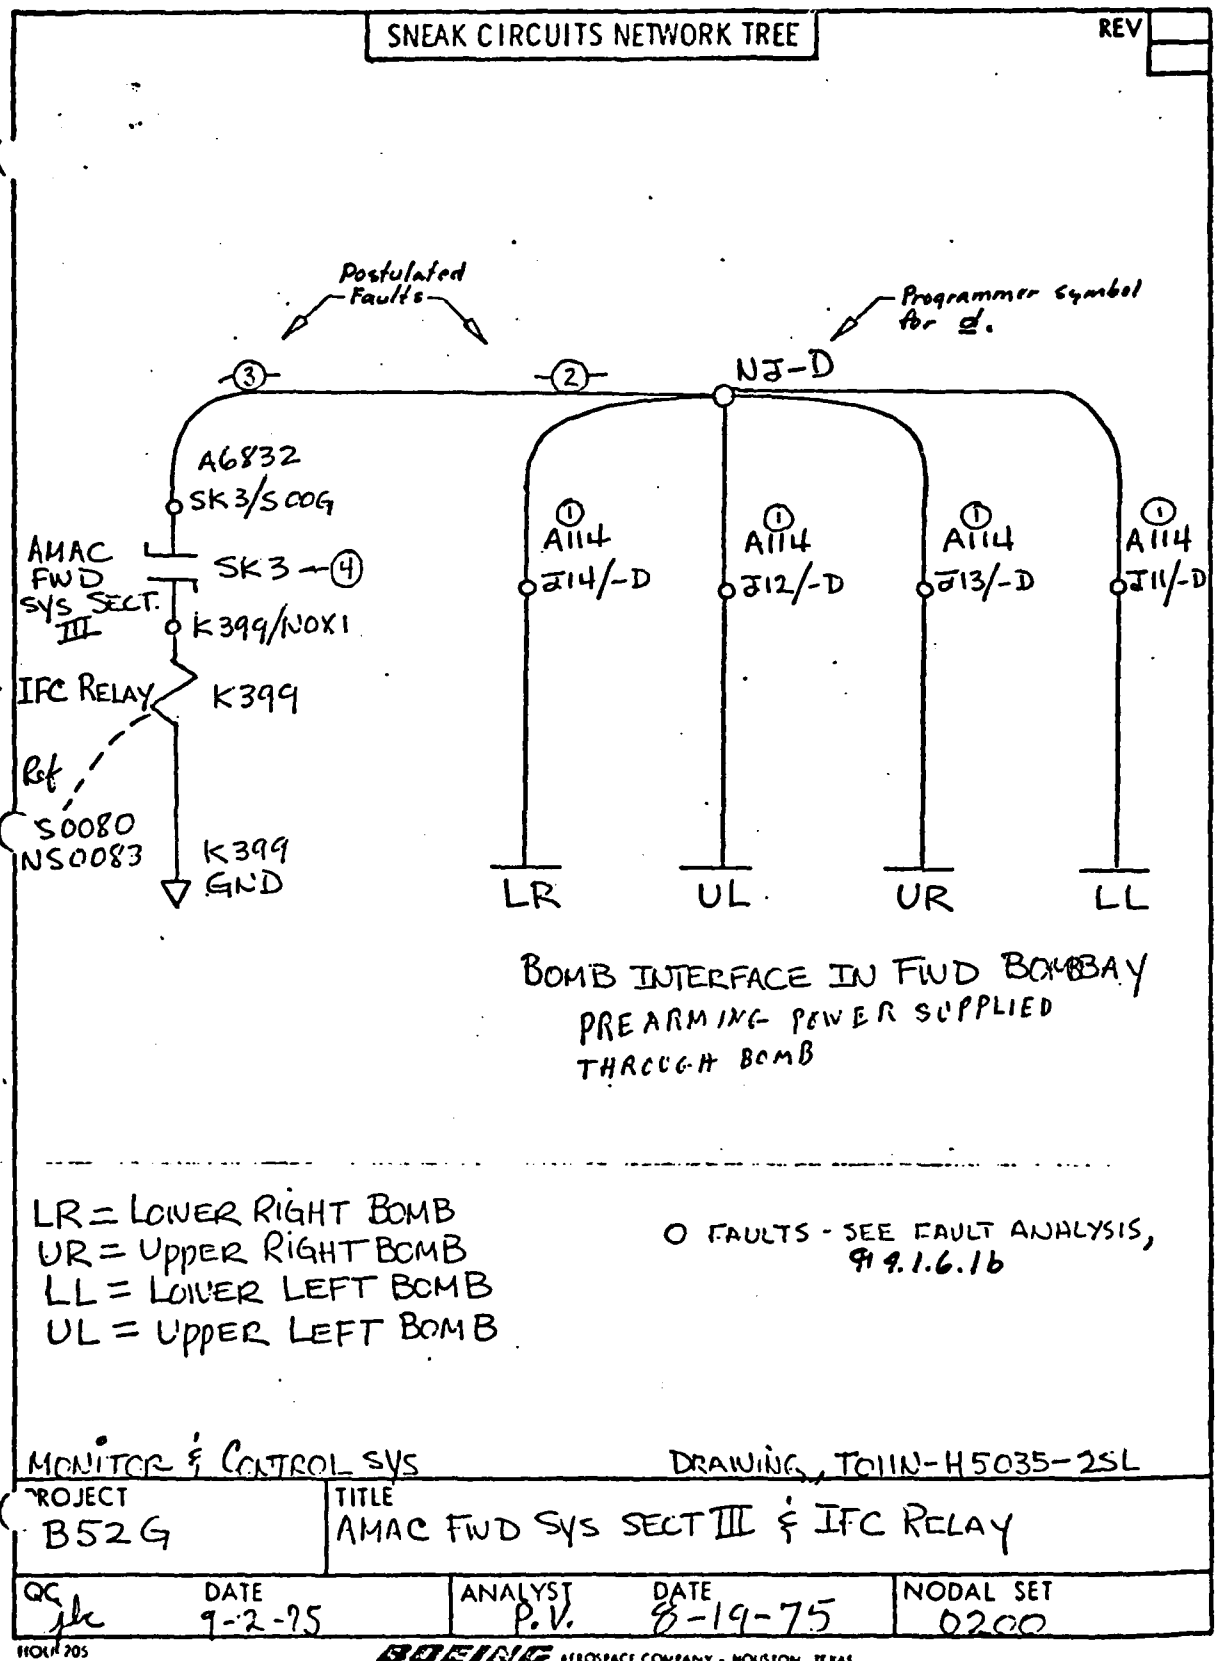 SNEAK CIRCUITS NETWORK TREE
REV
Postulated
Faults
Programmer Symbol
for d.
3
2
NJ-D
A6832
SK3/SCOG
AMAC
FWD
SYS SECT.
III
SK3
4
K399/NOX1
IFC RELAY
K399
Ref
S0080
NS0083
K399
GND
1
A114
J14/-D
1
A114
J12/-D
1
A114
J13/-D
1
A114
J11/-D
LR
UL
UR
LL
BOMB INTERFACE IN FWD BOMBBAY
PREARMING POWER SUPPLIED
THROUGH BOMB
LR = LOWER RIGHT BOMB
UR = UPPER RIGHT BOMB
LL = LOWER LEFT BOMB
UL = UPPER LEFT BOMB
O FAULTS - SEE FAULT ANALYSIS,
¶ 9.1.6.1b
MONITOR & CONTROL SYS
DRAWING, TO11N-H5035-2SL
PROJECT
B52G
TITLE
AMAC FWD SYS SECT III & IFC RELAY
QC
jlc
DATE
9-2-75
ANALYST
P.V.
DATE
8-19-75
NODAL SET
0200
HOU 205
BOEING AEROSPACE COMPANY - HOUSTON, TEXAS